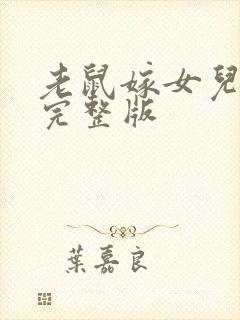 老鼠嫁女兒
完整版
葉嘉良